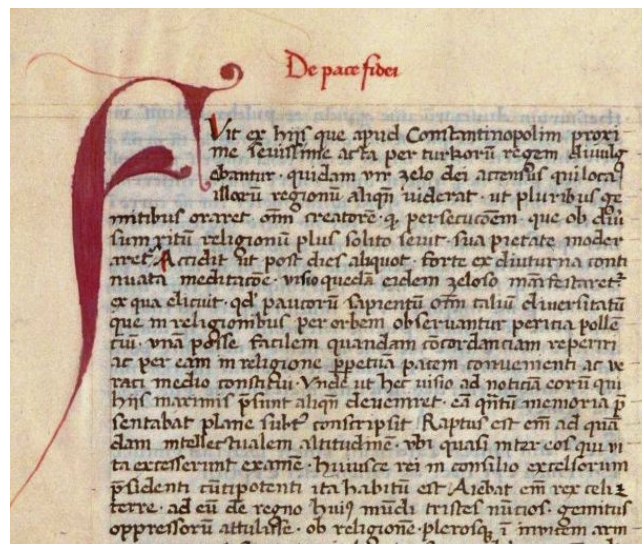 De pace fidei
FVit ex hijs que apud Constantinopolim proxi
me sevissime acta per turkorū regem divulg
ebantur · quidam vir zelo dei accensus qui loca
illorū regionū aliqn̄ viderat · ut pluribus ge
mitibus oraret om̄ creatorē · q persecucōem · que ob diū
sum ritū religionū plus solito sevit · sua pietate moder
aret Accidit ut post dies aliquot · forte ex diuturna conti
nuata meditacōe · visio quedā eidem zeloso manifestaret
ex qua elicuit · qd' paucorū sapientū om̄ taliū diversitatū
que in religionibus per orbem observantur pericia pollē
tiū · vnā posse facilem quandam cōcordanciam reperiri
ac per eam in religione ꝑpetuā pacem convenienti ac ve
raci medio constitui · Vnde ut hec visio ad noticiā eorū qui
hijs maximis p̄sunt aliqn̄ deveniret · eā qn̄tū memoria p̄
sentabat plane subt' conscripsit Raptus est em̄ ad quā
dam intellectualem altitudinē · vbi quasi inter eos qui vi
ta excesserunt examē · huiusce rei in consilio excelsorum
p̄sidenti cūtipotenti ita habitū est · Aiebat em̄ rex celi ⁊
terre · ad eū de regno huiꝰ mūdi tristes nūcios · gemitus
oppressorū attulisse · ob religionē · plerosq ī invicem arm